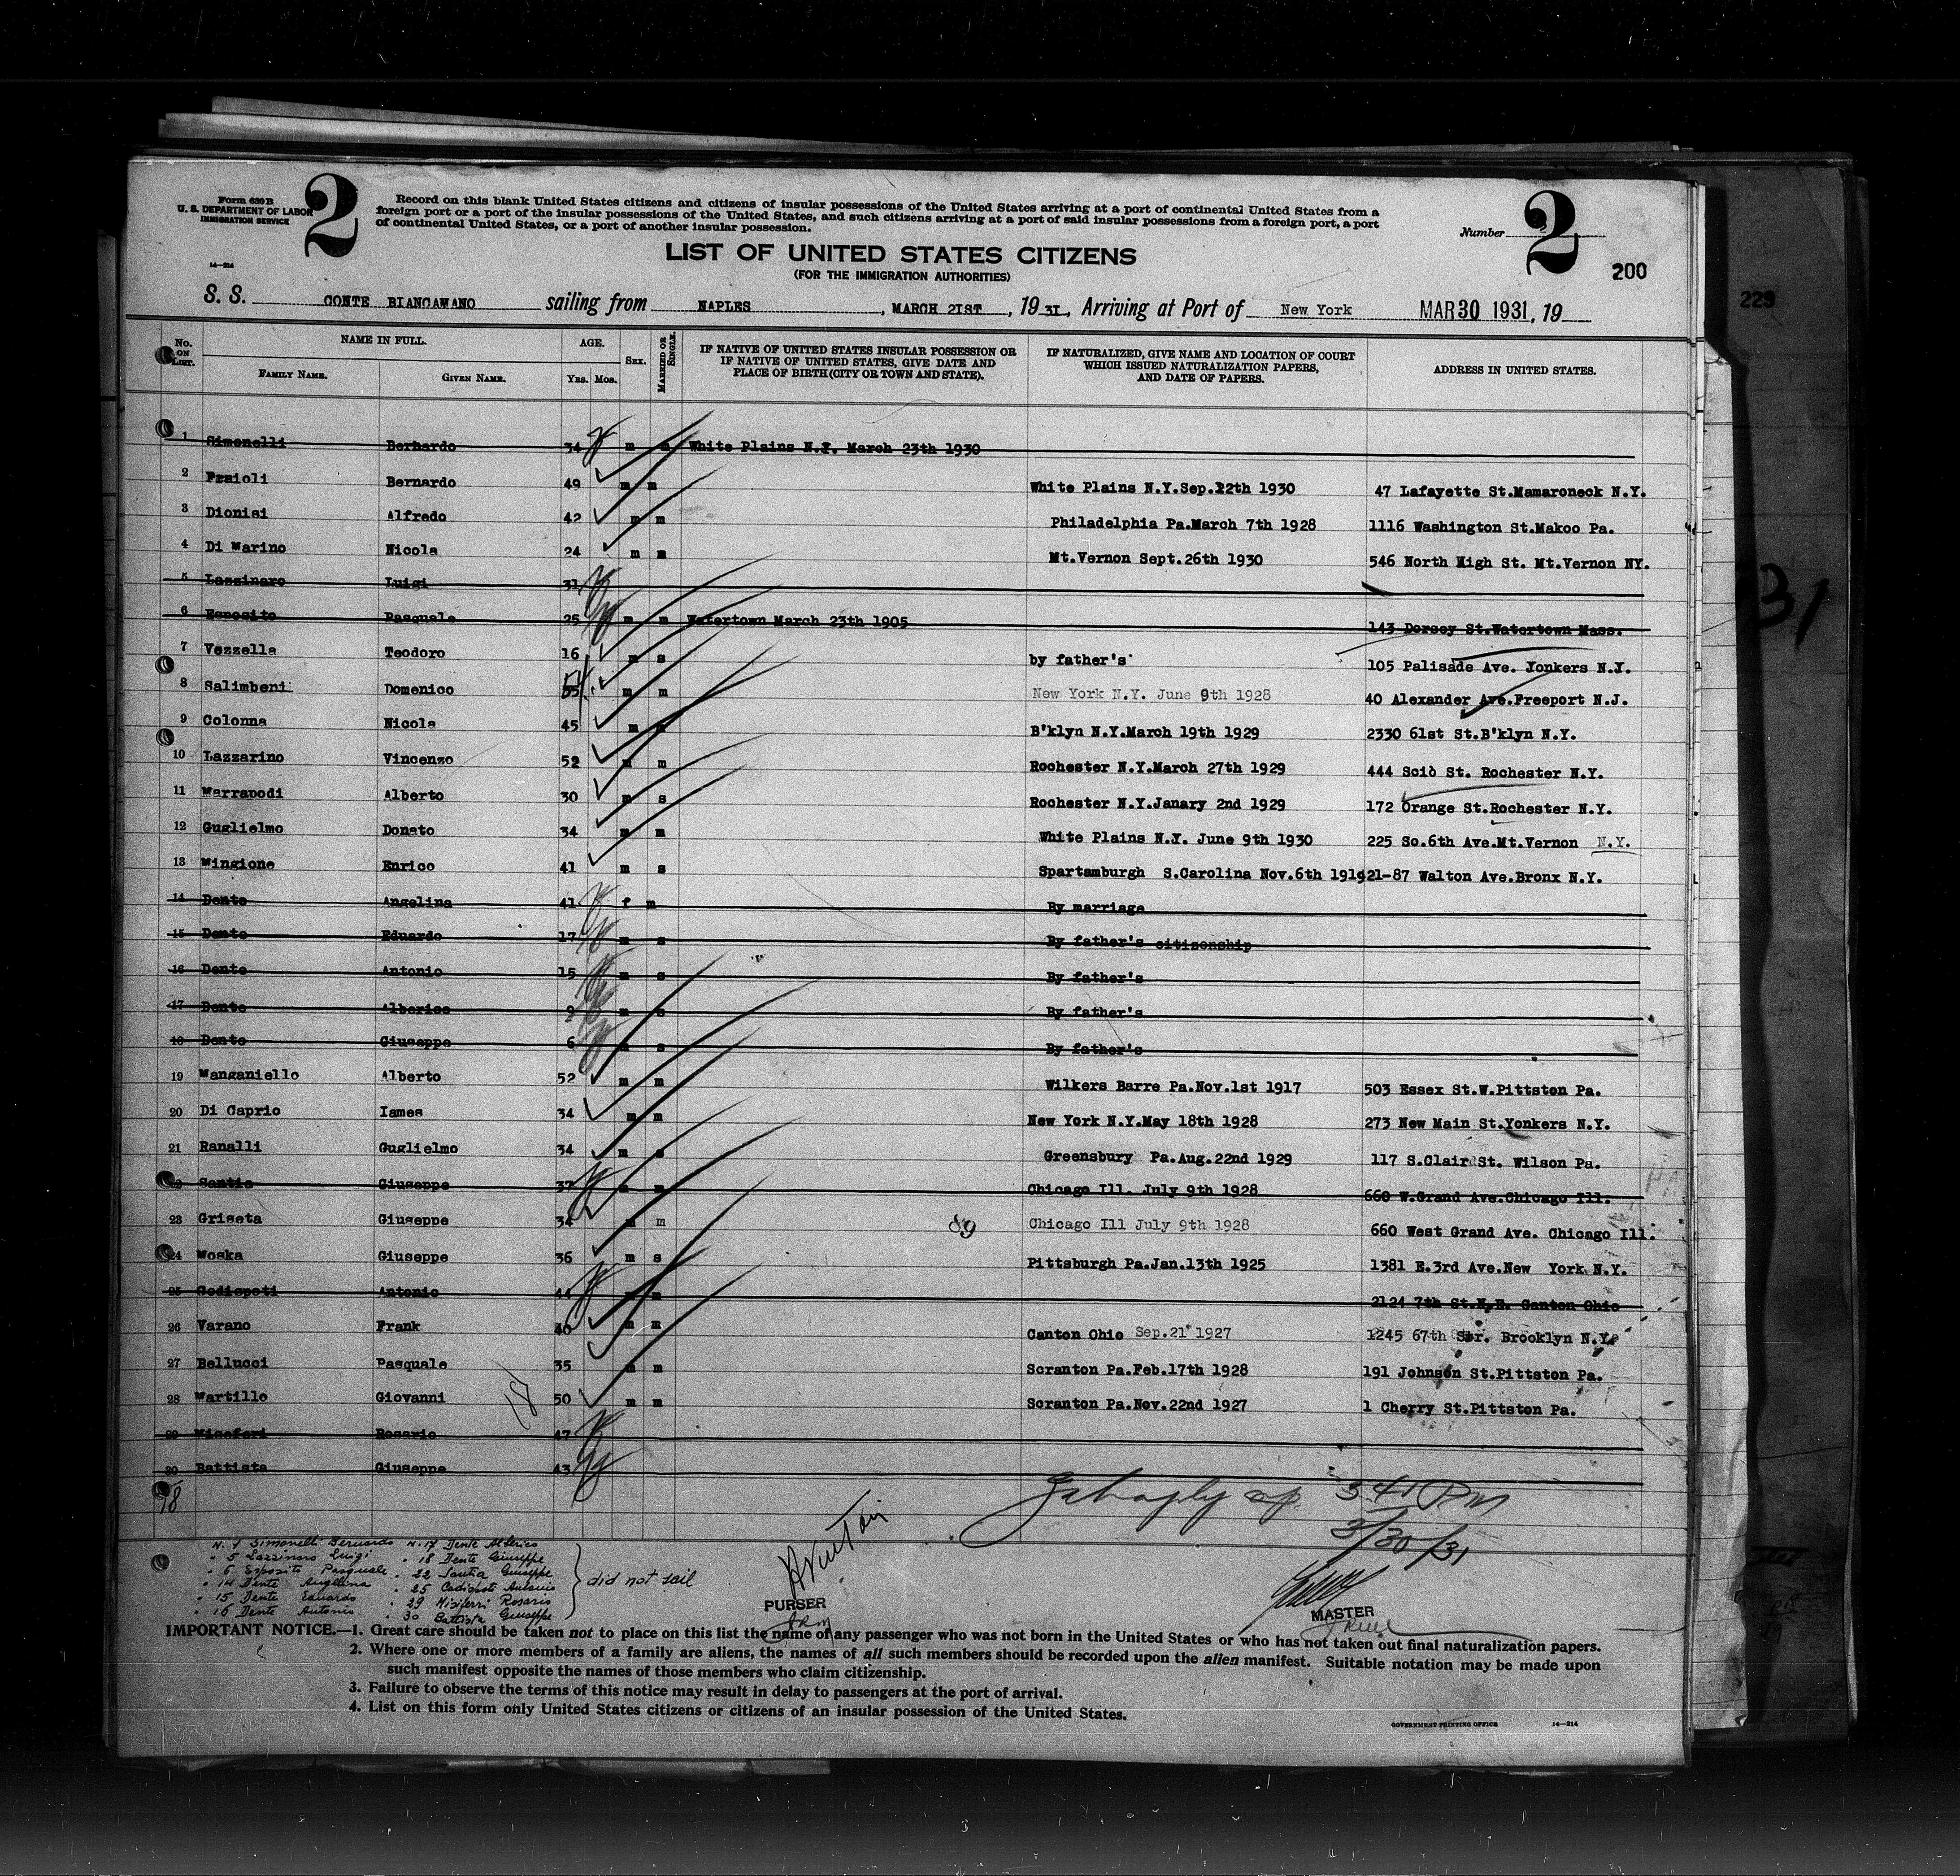 Form 630 B
U. S. DEPARTMENT OF LABOR
IMMIGRATION SERVICE
2
Record on this blank United States citizens and citizens of insular possessions of the United States arriving at a port of continental United States from a
foreign port or a port of the insular possessions of the United States, and such citizens arriving at a port of said insular possessions from a foreign port, a port
of continental United States, or a port of another insular possession.
Number 2
200
229
14—214
LIST OF UNITED STATES CITIZENS
(FOR THE IMMIGRATION AUTHORITIES)
S. S. CONTE BIANCAMANO sailing from NAPLES, MARCH 21ST, 1931, Arriving at Port of New York MAR 30 1931, 19
No. ON LIST. NAME IN FULL. FAMILY NAME. GIVEN NAME. AGE. YRS. MOS. SEX. MARRIED OR SINGLE. IF NATIVE OF UNITED STATES INSULAR POSSESSION OR IF NATIVE OF UNITED STATES, GIVE DATE AND PLACE OF BIRTH (CITY OR TOWN AND STATE). IF NATURALIZED, GIVE NAME AND LOCATION OF COURT WHICH ISSUED NATURALIZATION PAPERS, AND DATE OF PAPERS. ADDRESS IN UNITED STATES.
1 Simonelli Bernardo 34 m m White Plains N.Y. March 23th 1930
2 Fraioli Bernardo 49 m m White Plains N.Y.Sep.22th 1930 47 Lafayette St.Mamaroneck N.Y.
3 Dionisi Alfredo 42 m m Philadelphia Pa.March 7th 1928 1116 Washington St.Makoo Pa.
4 Di Marino Nicola 24 m m Mt.Vernon Sept.26th 1930 546 North High St. Mt.Vernon NY.
5 Lazzinaro Luigi 31
6 Esposito Pasquale 25 m m Watertown March 23th 1905 143 Dorsey St.Watertown Mass.
7 Vezzella Teodoro 16 m s by father's 105 Palisade Ave. Yonkers N.Y.
8 Salimbeni Domenico m m New York N.Y. June 9th 1928 40 Alexander Ave.Freeport N.J.
9 Colonna Nicola 45 m B'klyn N.Y.March 19th 1929 2330 61st St.B'klyn N.Y.
10 Lazzarino Vincenzo 52 m m Rochester N.Y.March 27th 1929 444 Scio St. Rochester N.Y.
11 Marrapodi Alberto 30 m s Rochester N.Y.Janary 2nd 1929 172 Orange St.Rochester N.Y.
12 Guglielmo Donato 34 m m White Plains N.Y. June 9th 1930 225 So.6th Ave.Mt.Vernon N.Y.
13 Mingione Enrico 41 m s Spartamburgh S.Carolina Nov.6th 1919 21-87 Walton Ave.Bronx N.Y.
14 Dente Angelina 41 f m By marriage
15 Dente Eduardo 17 m s By father's citizenship
16 Dente Antonio 15 m s By father's
17 Dente Alberico 9 m s By father's
18 Dente Giuseppe 6 m s By father's
19 Manganiello Alberto 52 m m Wilkers Barre Pa.Nov.1st 1917 503 Essex St.W.Pittston Pa.
20 Di Caprio Iames 34 m m New York N.Y.May 18th 1928 273 New Main St.Yonkers N.Y.
21 Ranalli Guglielmo 34 m s Greensbury Pa.Aug.22nd 1929 117 S.Clair St. Wilson Pa.
22 Santia Giuseppe 37 m m Chicago Ill. July 9th 1928 660 W.Grand Ave.Chicago Ill.
23 Griseta Giuseppe 34 m m 89 Chicago Ill July 9th 1928 660 West Grand Ave. Chicago Ill.
24 Moska Giuseppe 36 m s Pittsburgh Pa.Jan.13th 1925 1381 E.3rd Ave.New York N.Y.
25 Codispoti Antonio 44 m m 2124 7th St.N.E. Canton Ohio
26 Varano Frank 40 m m Canton Ohio Sep.21 1927 1245 67th Str. Brooklyn N.Y.
27 Bellucci Pasquale 35 m m Scranton Pa.Feb.17th 1928 191 Johnson St.Pittston Pa.
28 Martillo Giovanni 50 m m Scranton Pa.Nov.22nd 1927 1 Cherry St.Pittston Pa.
29 Miseferi Rosario 47
30 Battista Giuseppe 43
18
3 41 PM
3/30/31
N. 1 Simonelli Bernardo N. 17 Dente Alberico
" 5 Lazzinaro Luigi " 18 Dente Giuseppe
" 6 Esposito Pasquale " 22 Santia Giuseppe
" 14 Dente Angelina " 25 Codispoti Antonio
" 15 Dente Eduardo " 29 Misiferri Rosario
" 16 Dente Antonio " 30 Battista Giuseppe
did not sail
PURSER
MASTER
IMPORTANT NOTICE.—1. Great care should be taken not to place on this list the name of any passenger who was not born in the United States or who has not taken out final naturalization papers.
2. Where one or more members of a family are aliens, the names of all such members should be recorded upon the alien manifest. Suitable notation may be made upon
such manifest opposite the names of those members who claim citizenship.
3. Failure to observe the terms of this notice may result in delay to passengers at the port of arrival.
4. List on this form only United States citizens or citizens of an insular possession of the United States.
GOVERNMENT PRINTING OFFICE 14—214